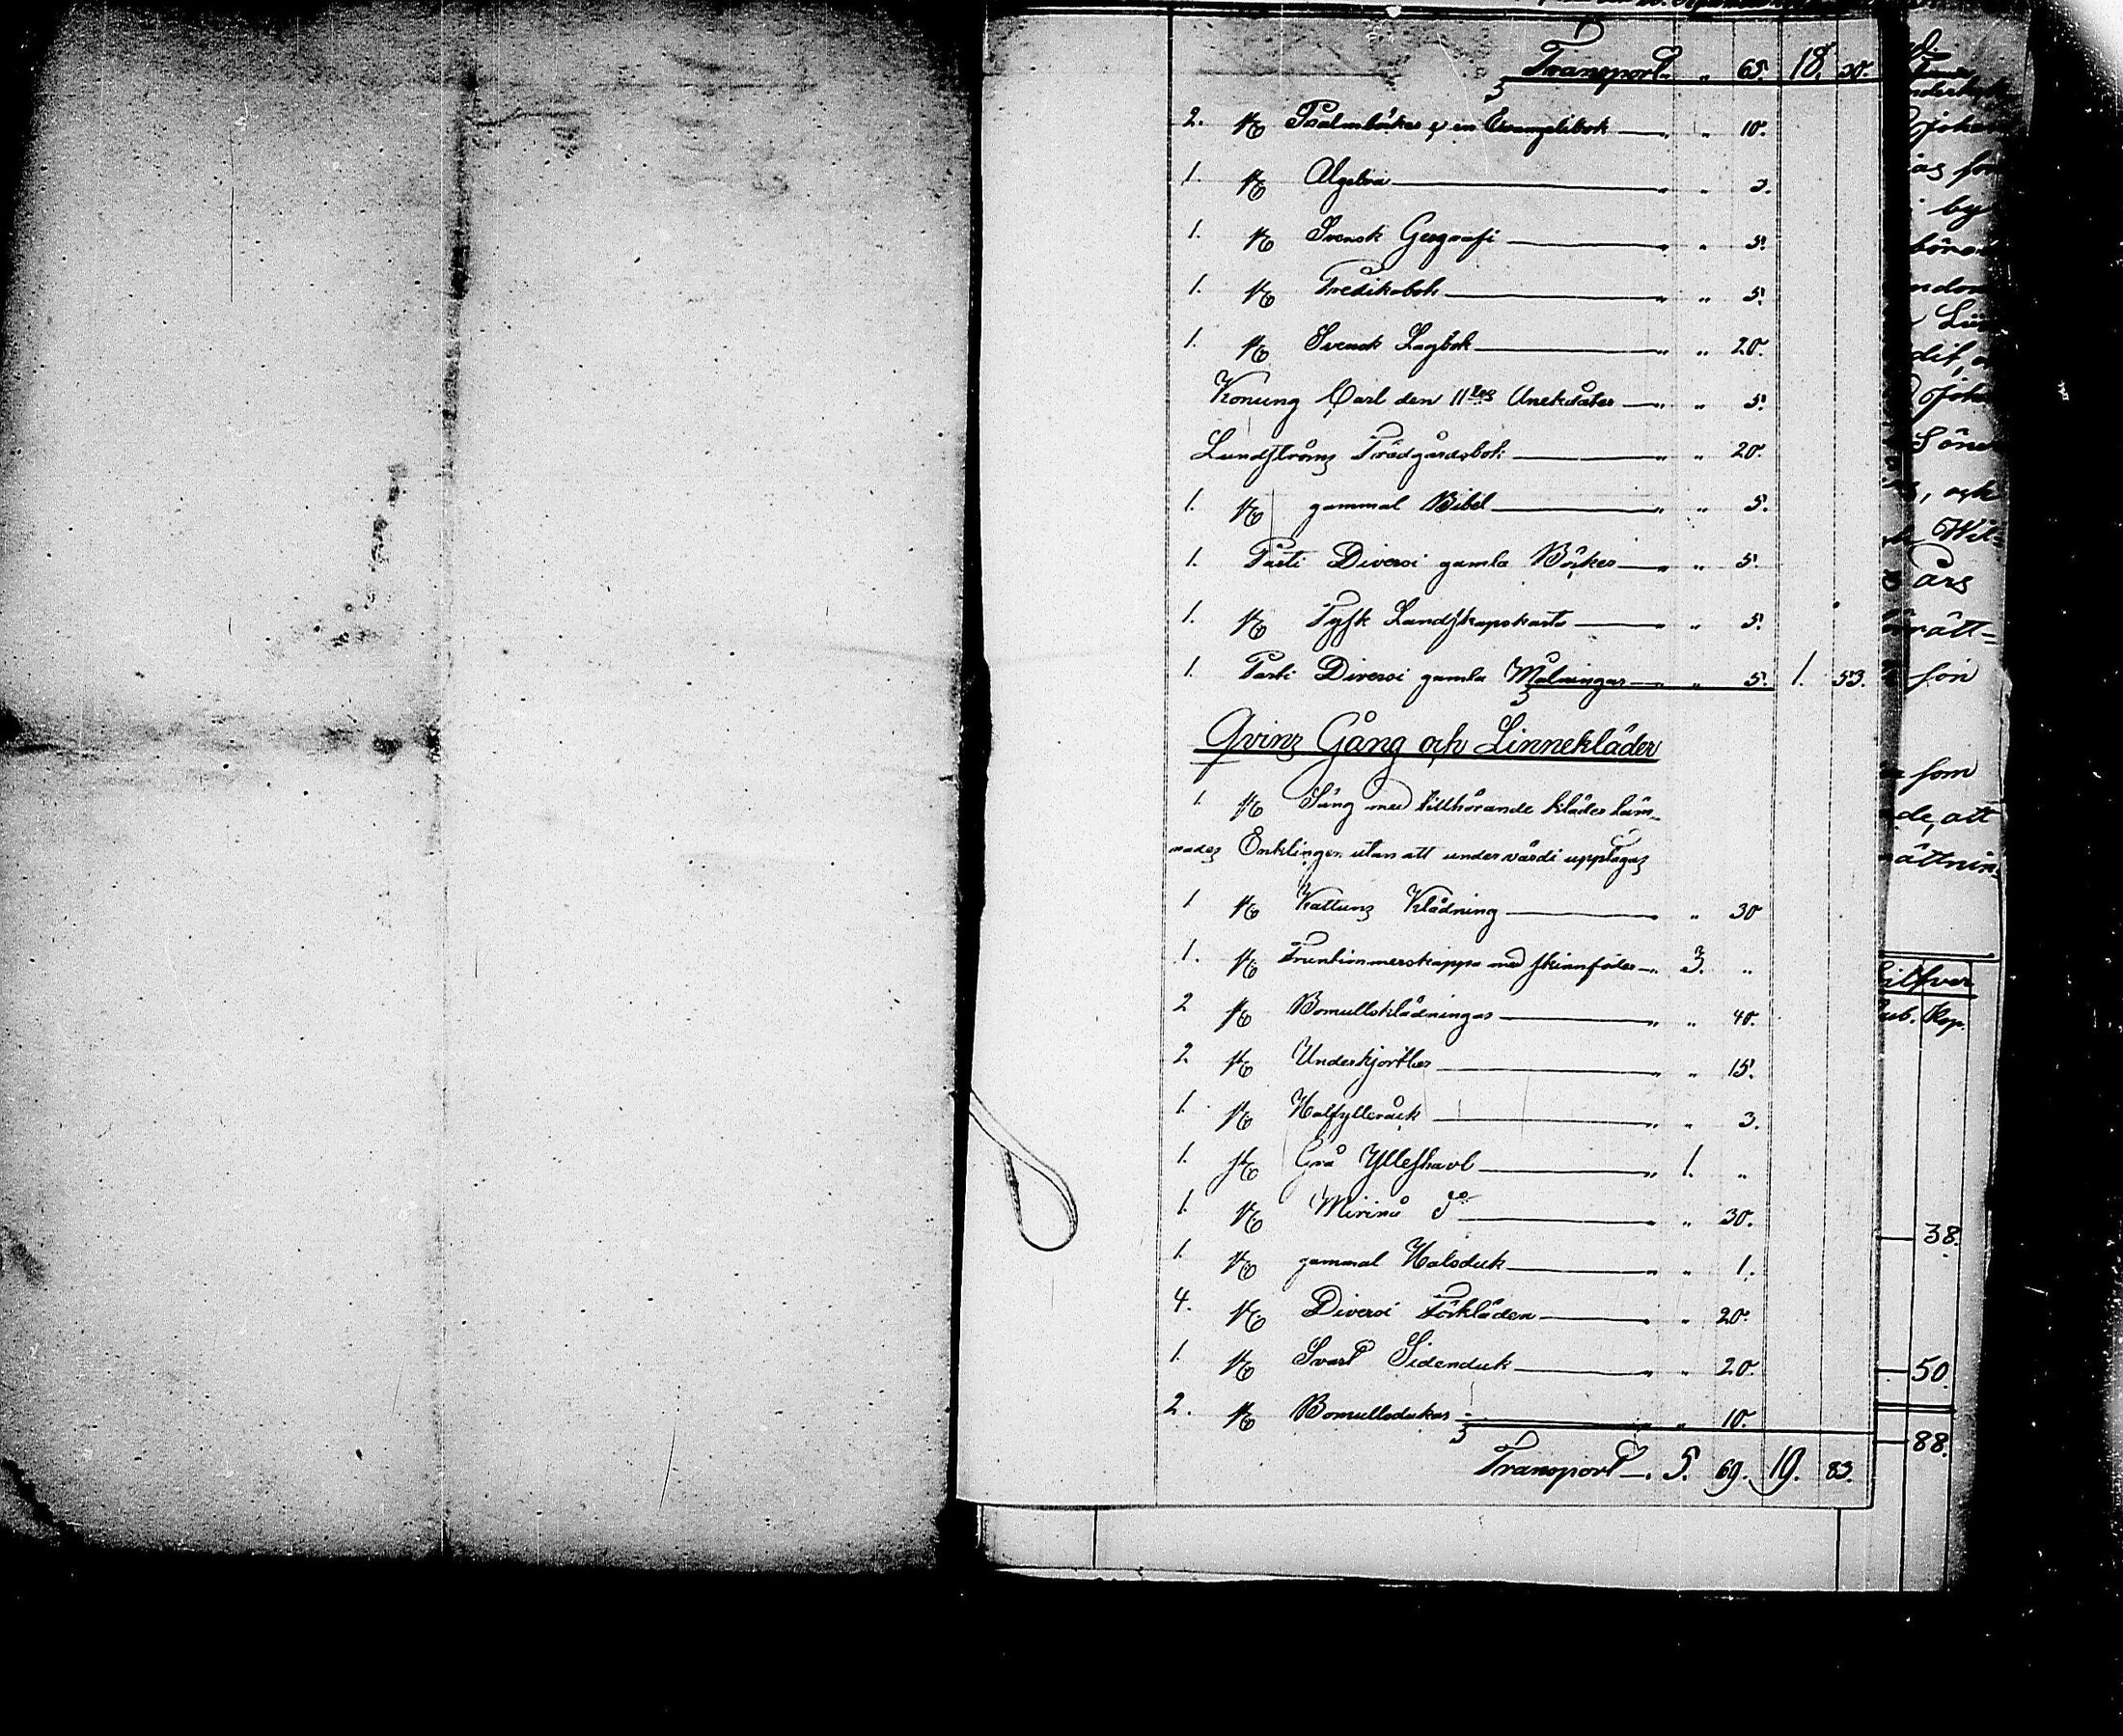 Transport " 65. 18. 30.
2. st Psalmböker & en Evangelibok " " 10.
1. st Algebra " " 3.
1. st Svensk Geografi " " 5.
1. st Predikobok " " 5.
1. st Svensk Lagbok " " 20.
Konung Carl den 11tes Anekdåter " " 5.
Lundströms Trädgårdsbok " " 20.
1. st gammal Bibel " " 5.
1. Parti Diversi gamla Böcker " " 5.
1. st Tysk Landskapskarta " " 5.
1. Parti Diversi gamla Målningar " " 5. 1. 53.
Qvins Gång och Linnekläder
1. st Säng med tillhörande kläder läm-
nades Enklingen utan att under värdi upptagas
1 st Kattuns Klädning " " 30
1. st Fruntimmerskappa med skinnfoder " 3. "
2 st Bomullsklädningar " " 40.
2. st Underkjortlar " " 15.
1. st Halfylleråck " " 3.
1. st Grå Ylleshavl " 1. "
1. st Mirinå do " " 30.
1. st gammal Halsduk " " 1.
4. st Diversi Förkläden " " 20.
1. st Svart Sidenduk " " 20.
2. st Bomullsdukar " " 10.
Transport " 5. 69. 19. 83.
by
son
, och
års
rätt=
son
som
de, att
Kop.
38.
50.
88.